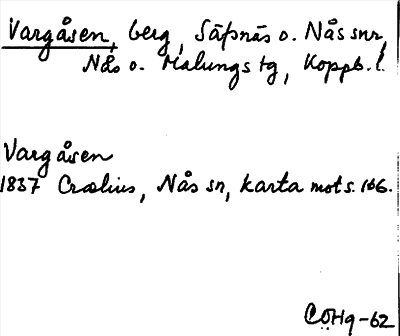 Vargåsen, berg, Säfsnäs o. Nås snr,
Nås o. Malungs tg, Koppb. l.
Vargåsen
1837 Crælius, Nås sn, karta mot s. 166.
CÖHg-62